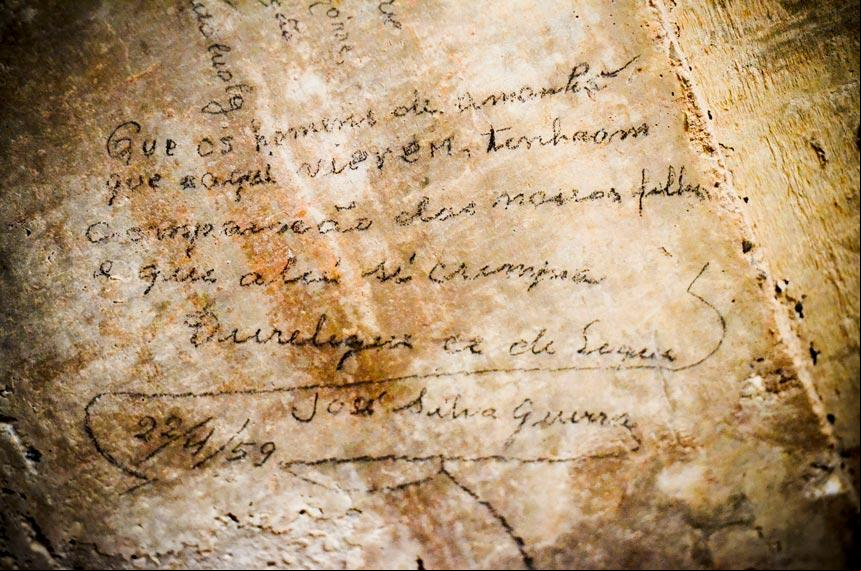 Que os homens de amanhã
que aqui vierem, tenhaom
compaixão dos nossos filhos
e que a lei si crumpra
José Silva Guerra
22/4/59